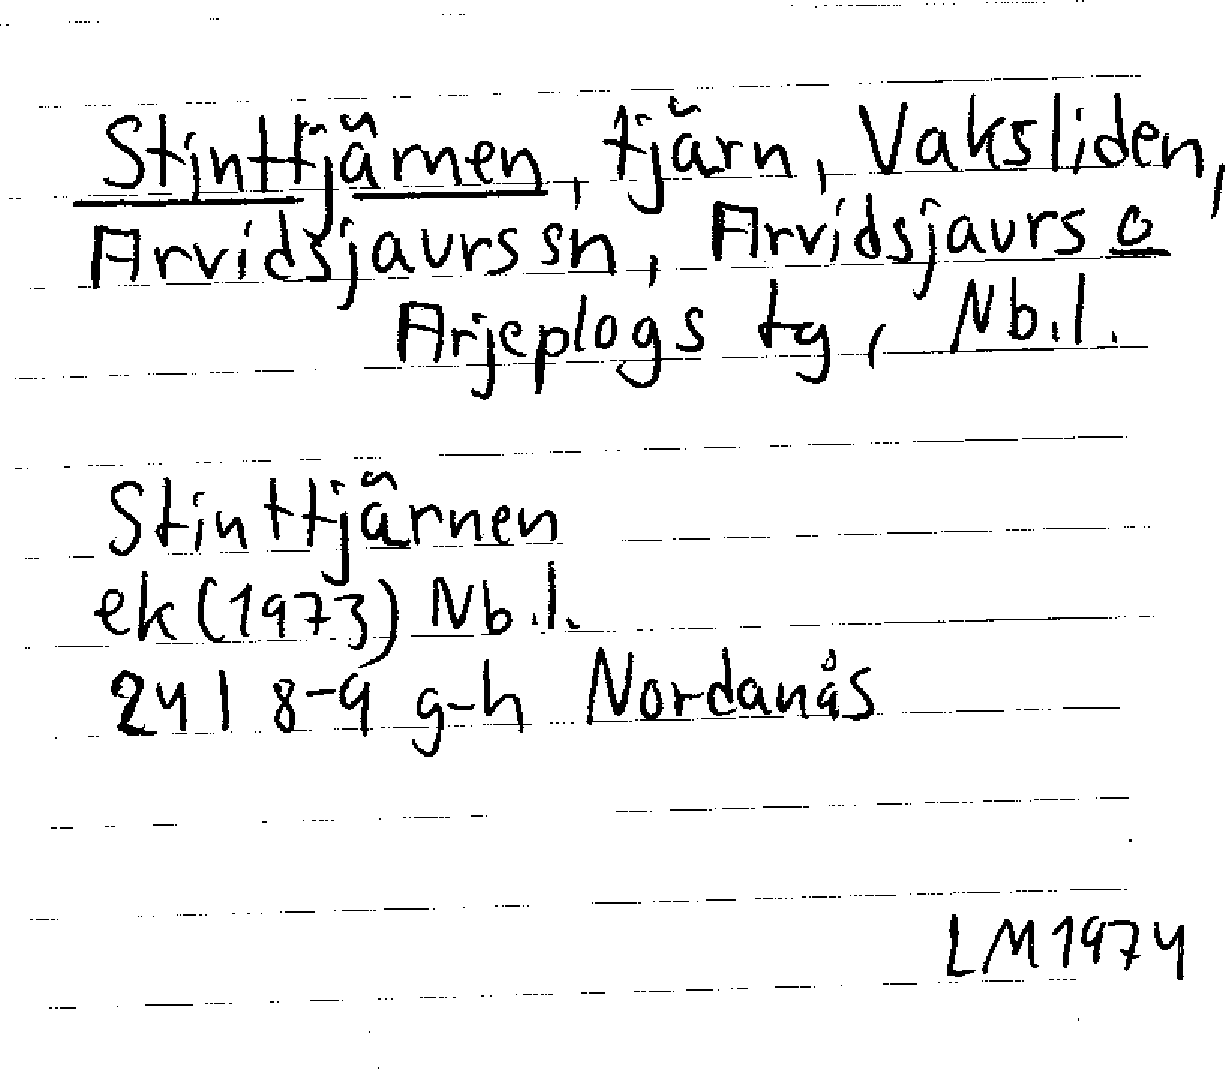 Stinttjärnen, tjärn, Vaksliden,
Arvidsjaurs sn, Arvidsjaurs o
Arjeplogs tg, Nb.l.
Stinttjärnen
ek (1973) Nb.l.
24 I 8-9 g-h Nordanås
LM 1974